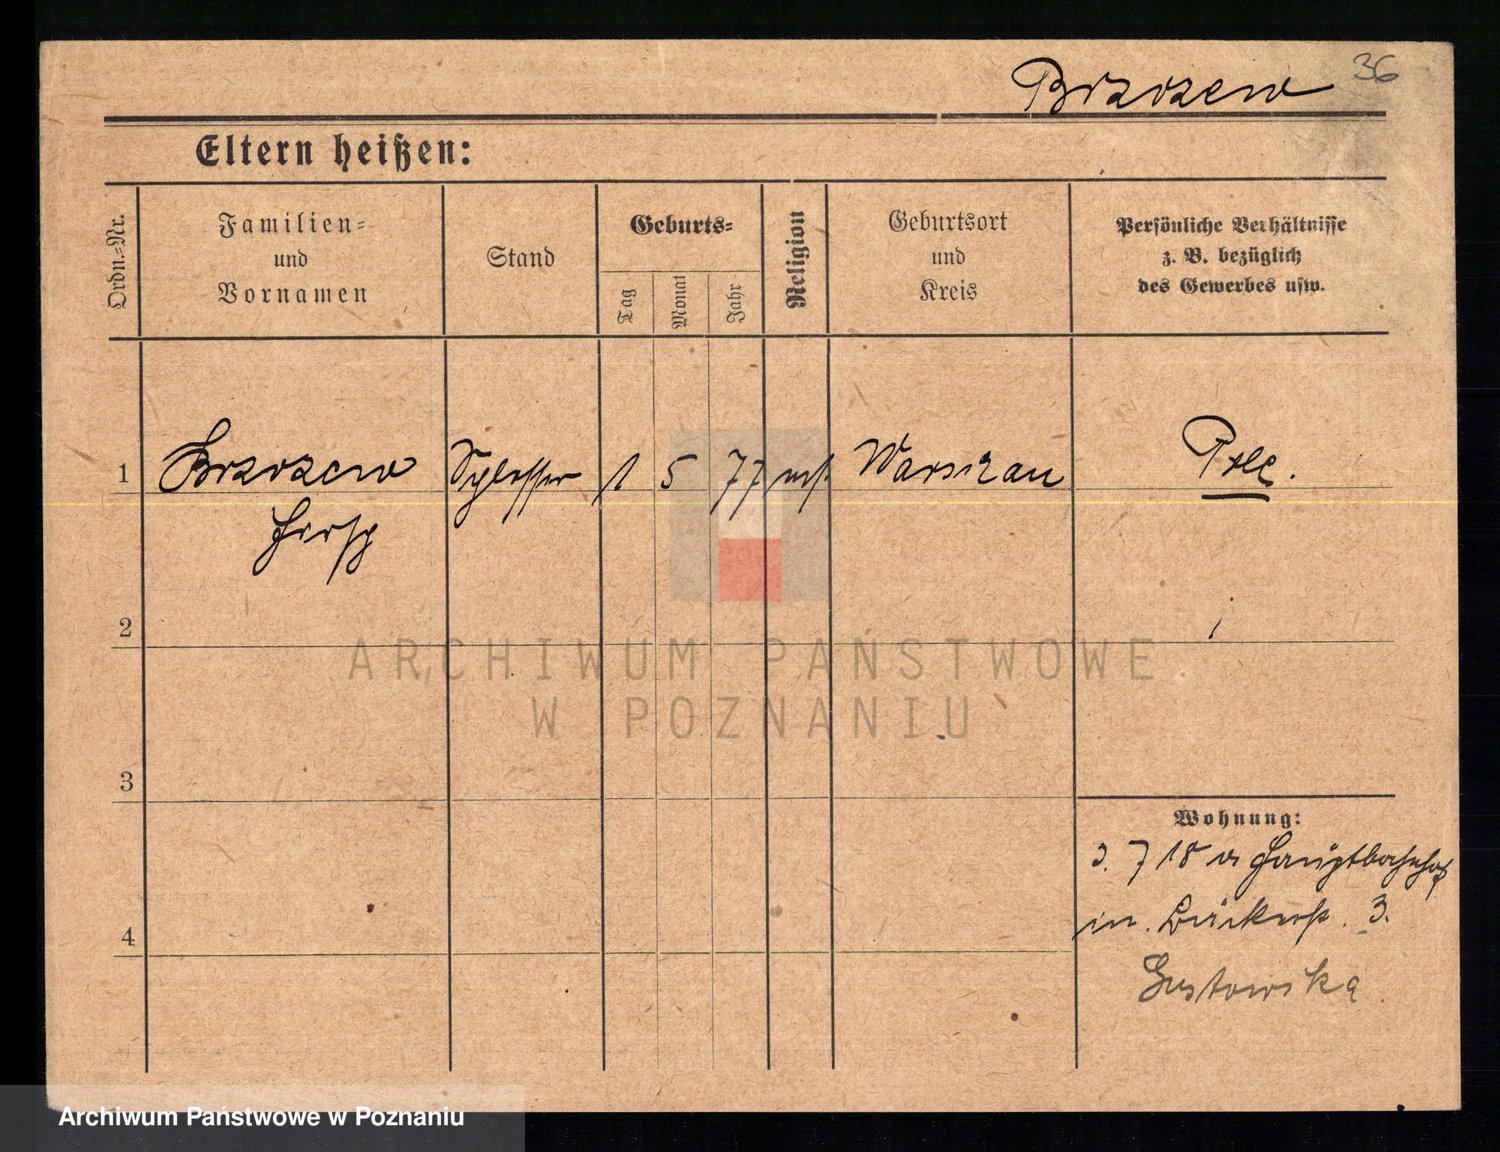 36
Brzozew
Eltern heißen:
Ordn.-Nr.
Familien-
und
Vornamen
Stand
Geburts-
Tag
Monat
Jahr
Religion
Geburtsort
und
Kreis
Persönliche Verhältnisse
z. B. bezüglich
des Gewerbes usw.
1
Brzozew
Hirsch
Schlosser
1
5
77
mos.
Warszau
Pole.
2
3
4
Wohnung:
3. 7 18 Hauptbahnhof
3.
Gustowska
ARCHIWUM PAŃSTWOWE
W POZNANIU
Archiwum Państwowe w Poznaniu